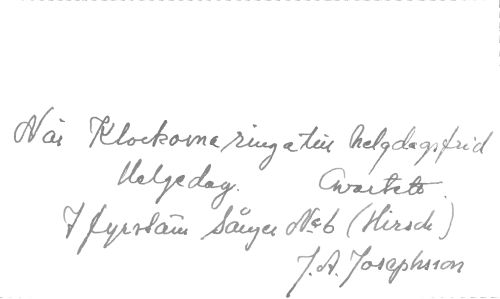 När Klockorna ringa till helgdagsfrid
Helgedag. Qvartett.
7 fyrstäm Sånger No 6 (Hirsch)
J. A. Josephsson